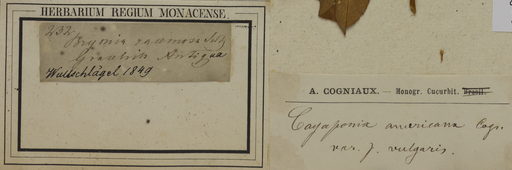 HERBARIUM REGIUM MONACENSE.
232.
Bryonia racemosa
Antigua
Wullschlägel 1849
A. COGNIAUX. — Monogr. Cucurbit. Brasil.
Cayaponia americana Cogn.
var. γ. vulgaris.